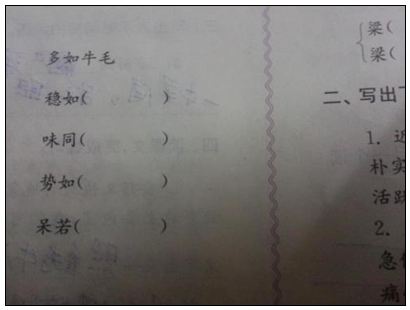 多如牛毛
稳如(　　　)
味同(　　　)
势如(　　　)
呆若(　　　)
梁(
梁(
二、写出
1. 近
朴实
活跃
2.
急
痛